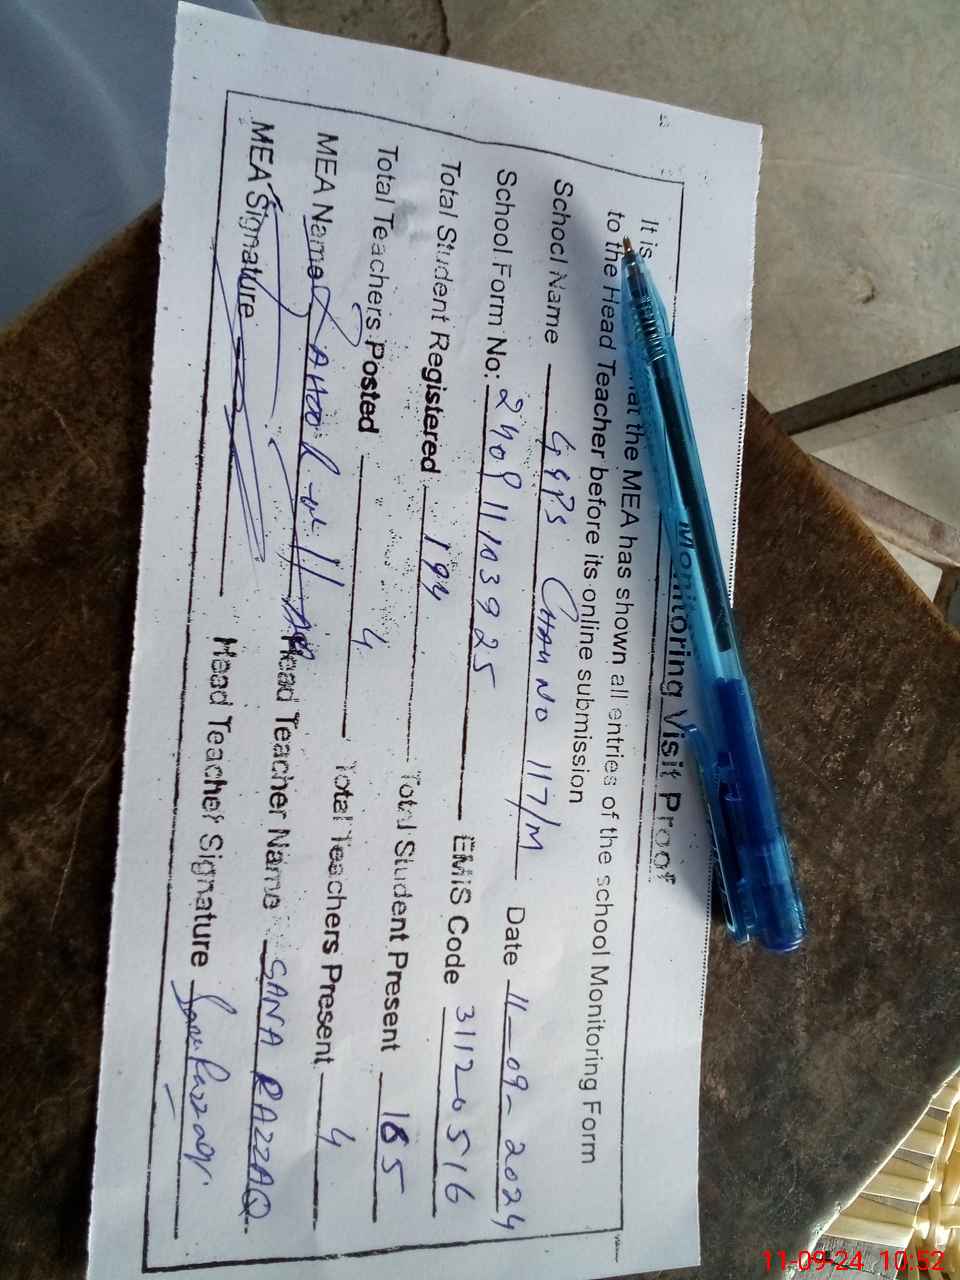 Monitoring Visit Proof
It is that the MEA has shown all entries of the school Monitoring Form
to the Head Teacher before its online submission
School Name GGPS CHAK NO 117/M Date 11-09-2024
School Form No: 240911103925 EMIS Code 31120516
Total Student Registered 194 Total Student Present 165
Total Teachers Posted 4 Total Teachers Present 4
MEA Name Head Teacher Name SANA RAZZAQ
MEA Signature Head Teacher Signature
11-09-24 10:52